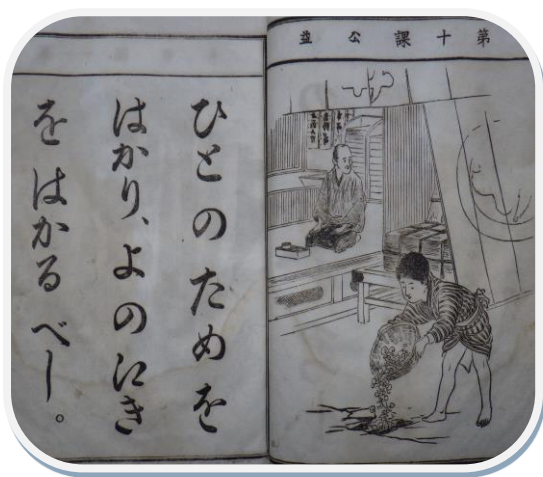 第十課 公益
ひとのためを
はかり、よのえき
をはかるべし。